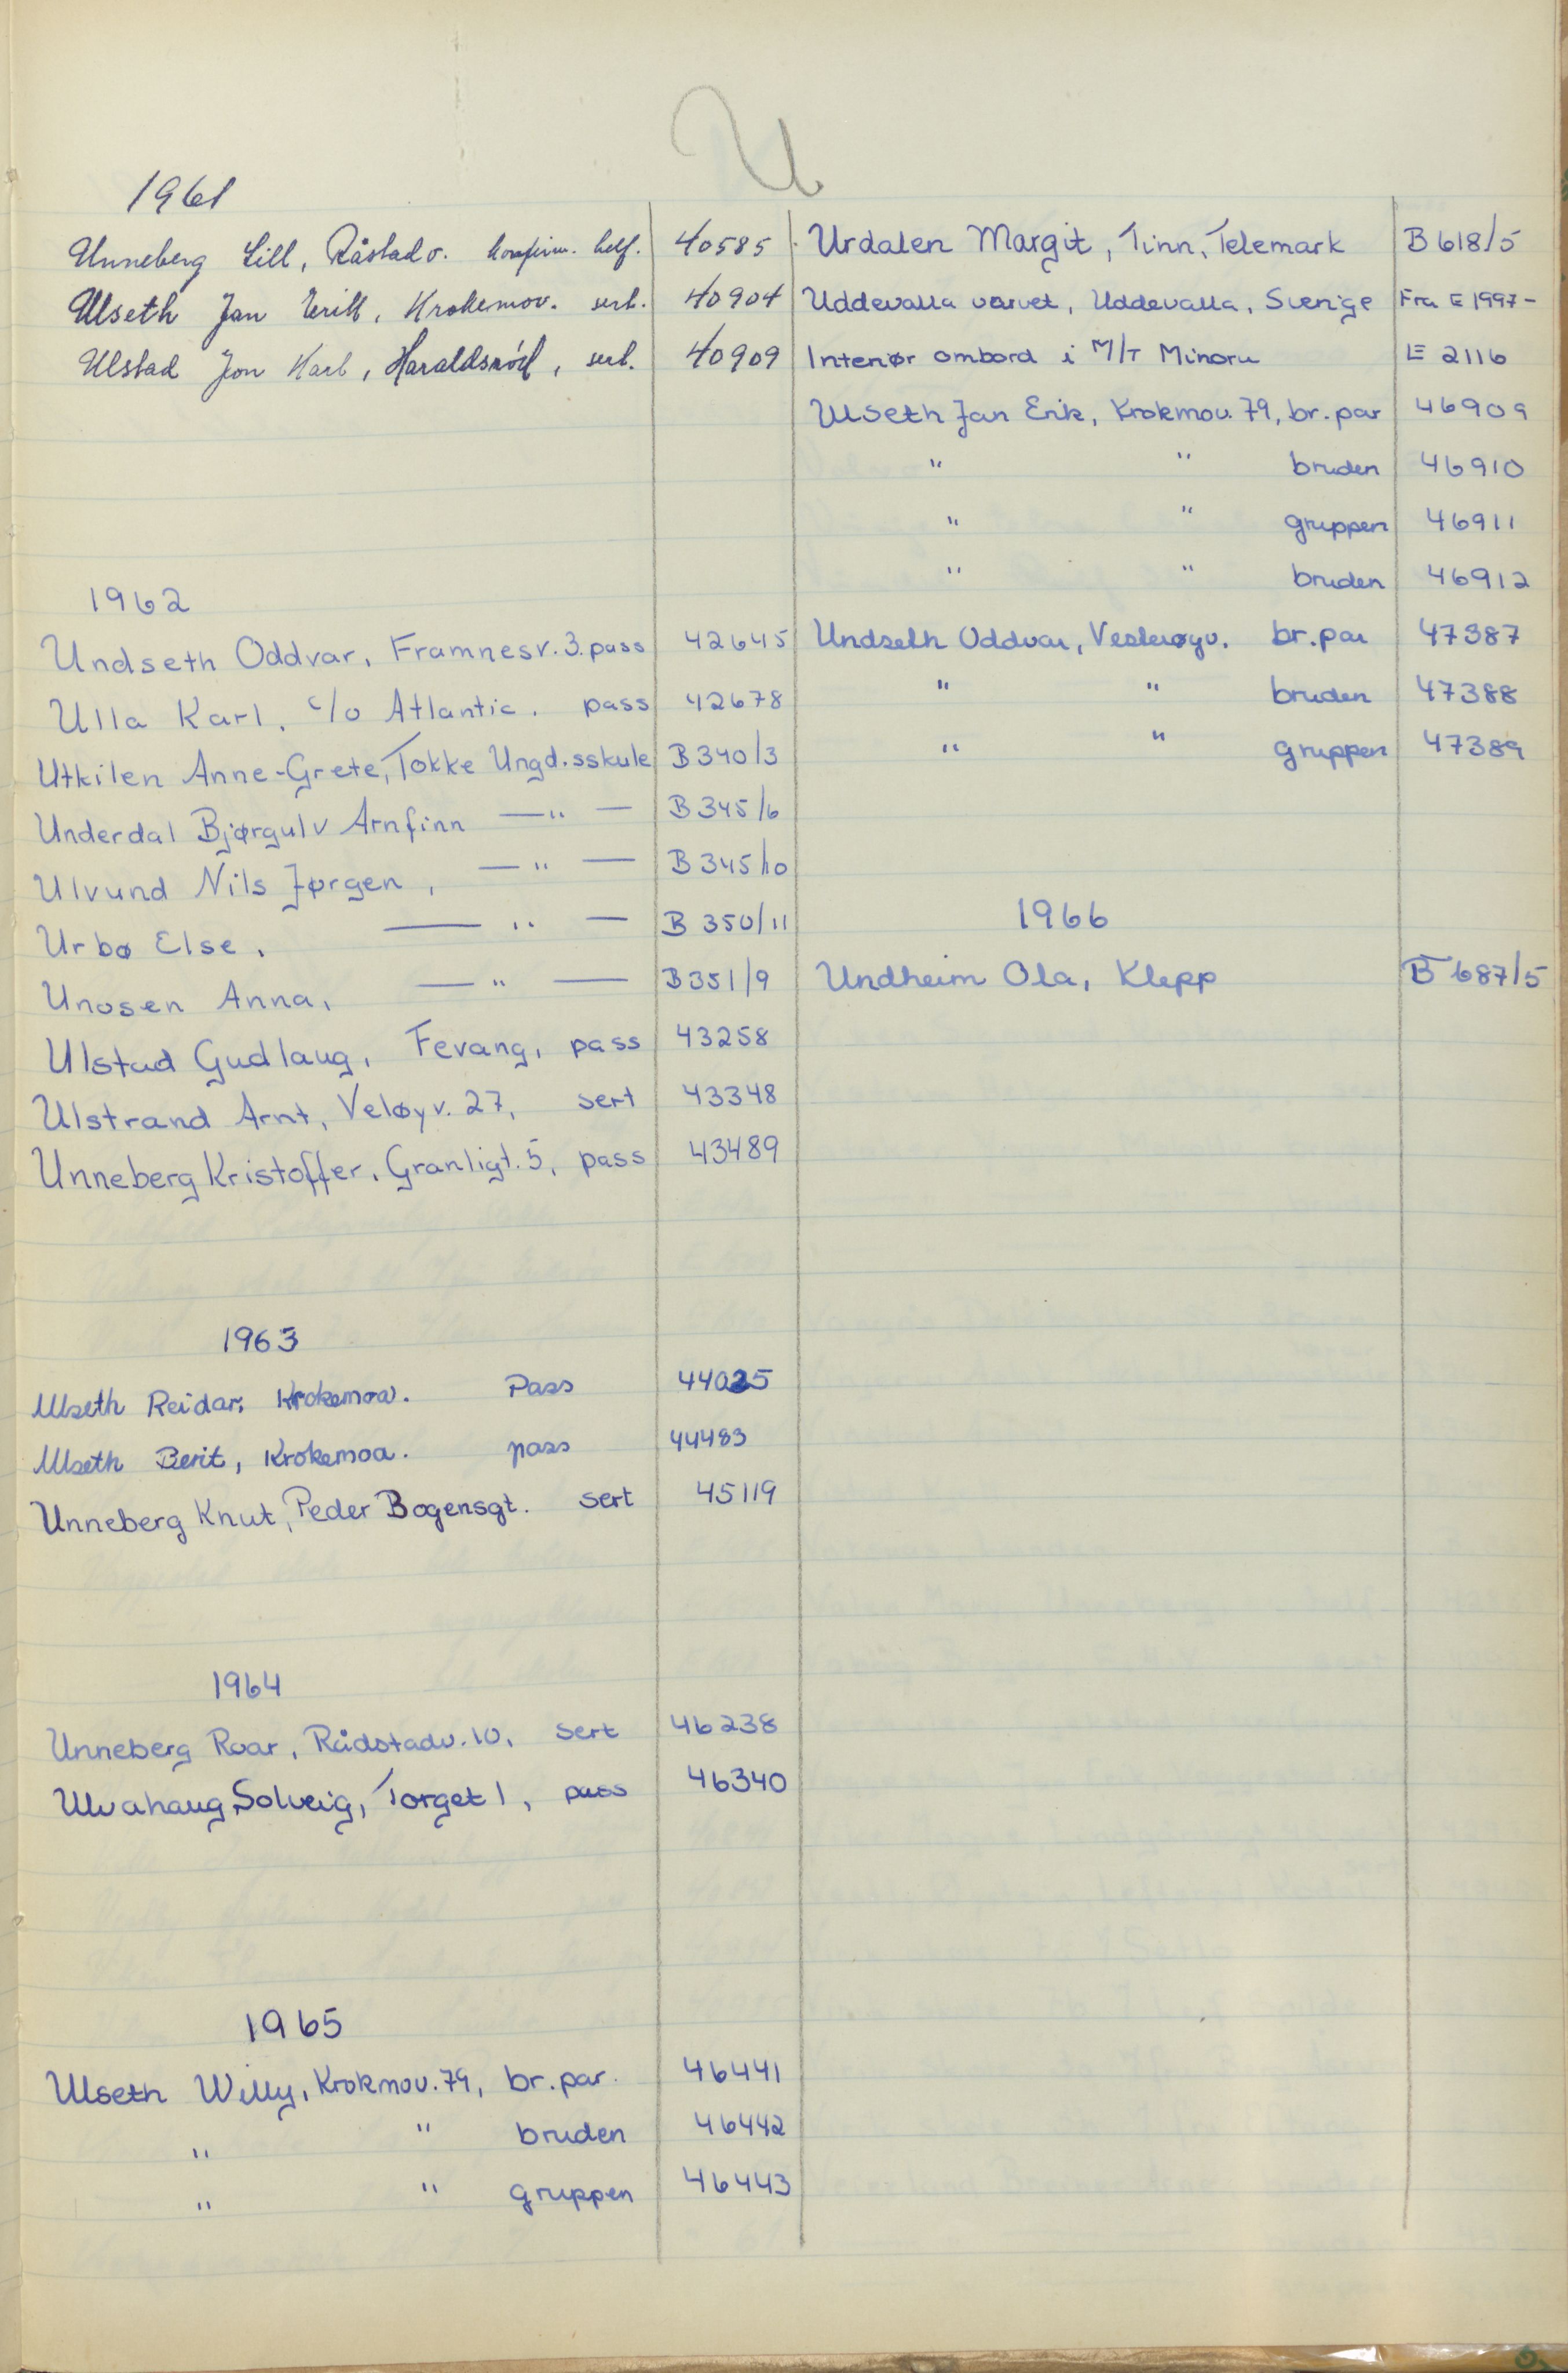 U
1961
Unneberg Lill, Råstadv. konfirm. helf. 40585
Ulseth Jan Erik, Krokemov. sert. 40904
Ulstad Jon Karl, Haraldsrød, sert. 40909
1962
Undseth Oddvar, Framnesv. 3. pass 42645
Ulla Karl, c/o Atlantic. pass 42678
Utkilen Anne-Grete, Tokke Ungd.sskule B 340/3
Underdal Bjørgulv Arnfinn —"— B 345/6
Ulvund Nils Jørgen, —"— B 345/10
Urbø Else, —"— B 350/11
Unosen Anna, —"— B 351/9
Ulstad Gudlaug, Fevang, pass 43258
Ulstrand Arnt, Veløyv. 27, sert 43348
Unneberg Kristoffer, Granligt. 5, pass 43489
1963
Ulseth Reidar, Krokemoa. Pass 44025
Ulseth Berit, Krokemoa. pass 44483
Unneberg Knut, Peder Bogensgt. sert 45119
1964
Unneberg Roar, Rådstadv. 10, sert 46238
Ulvahaug Solveig, Torget 1, pass 46340
1965
Ulseth Willy, Krokmov. 79, br.par. 46441
" " bruden 46442
" " gruppen 46443
Urdalen Margit, Tinn, Telemark B 618/5
Uddevalla varvet, Uddevalla, Sverige Fra E 1997-
Interiør ombord i M/T Minoru E 2116
Ulseth Jan Erik, Krokmov. 79, br.par 46909
" " bruden 46910
" " gruppen 46911
" " bruden 46912
Undseth Oddvar, Vesterøyv. br.par 47387
" " bruden 47388
" " gruppen 47389
1966
Undheim Ola, Klepp B 687/5